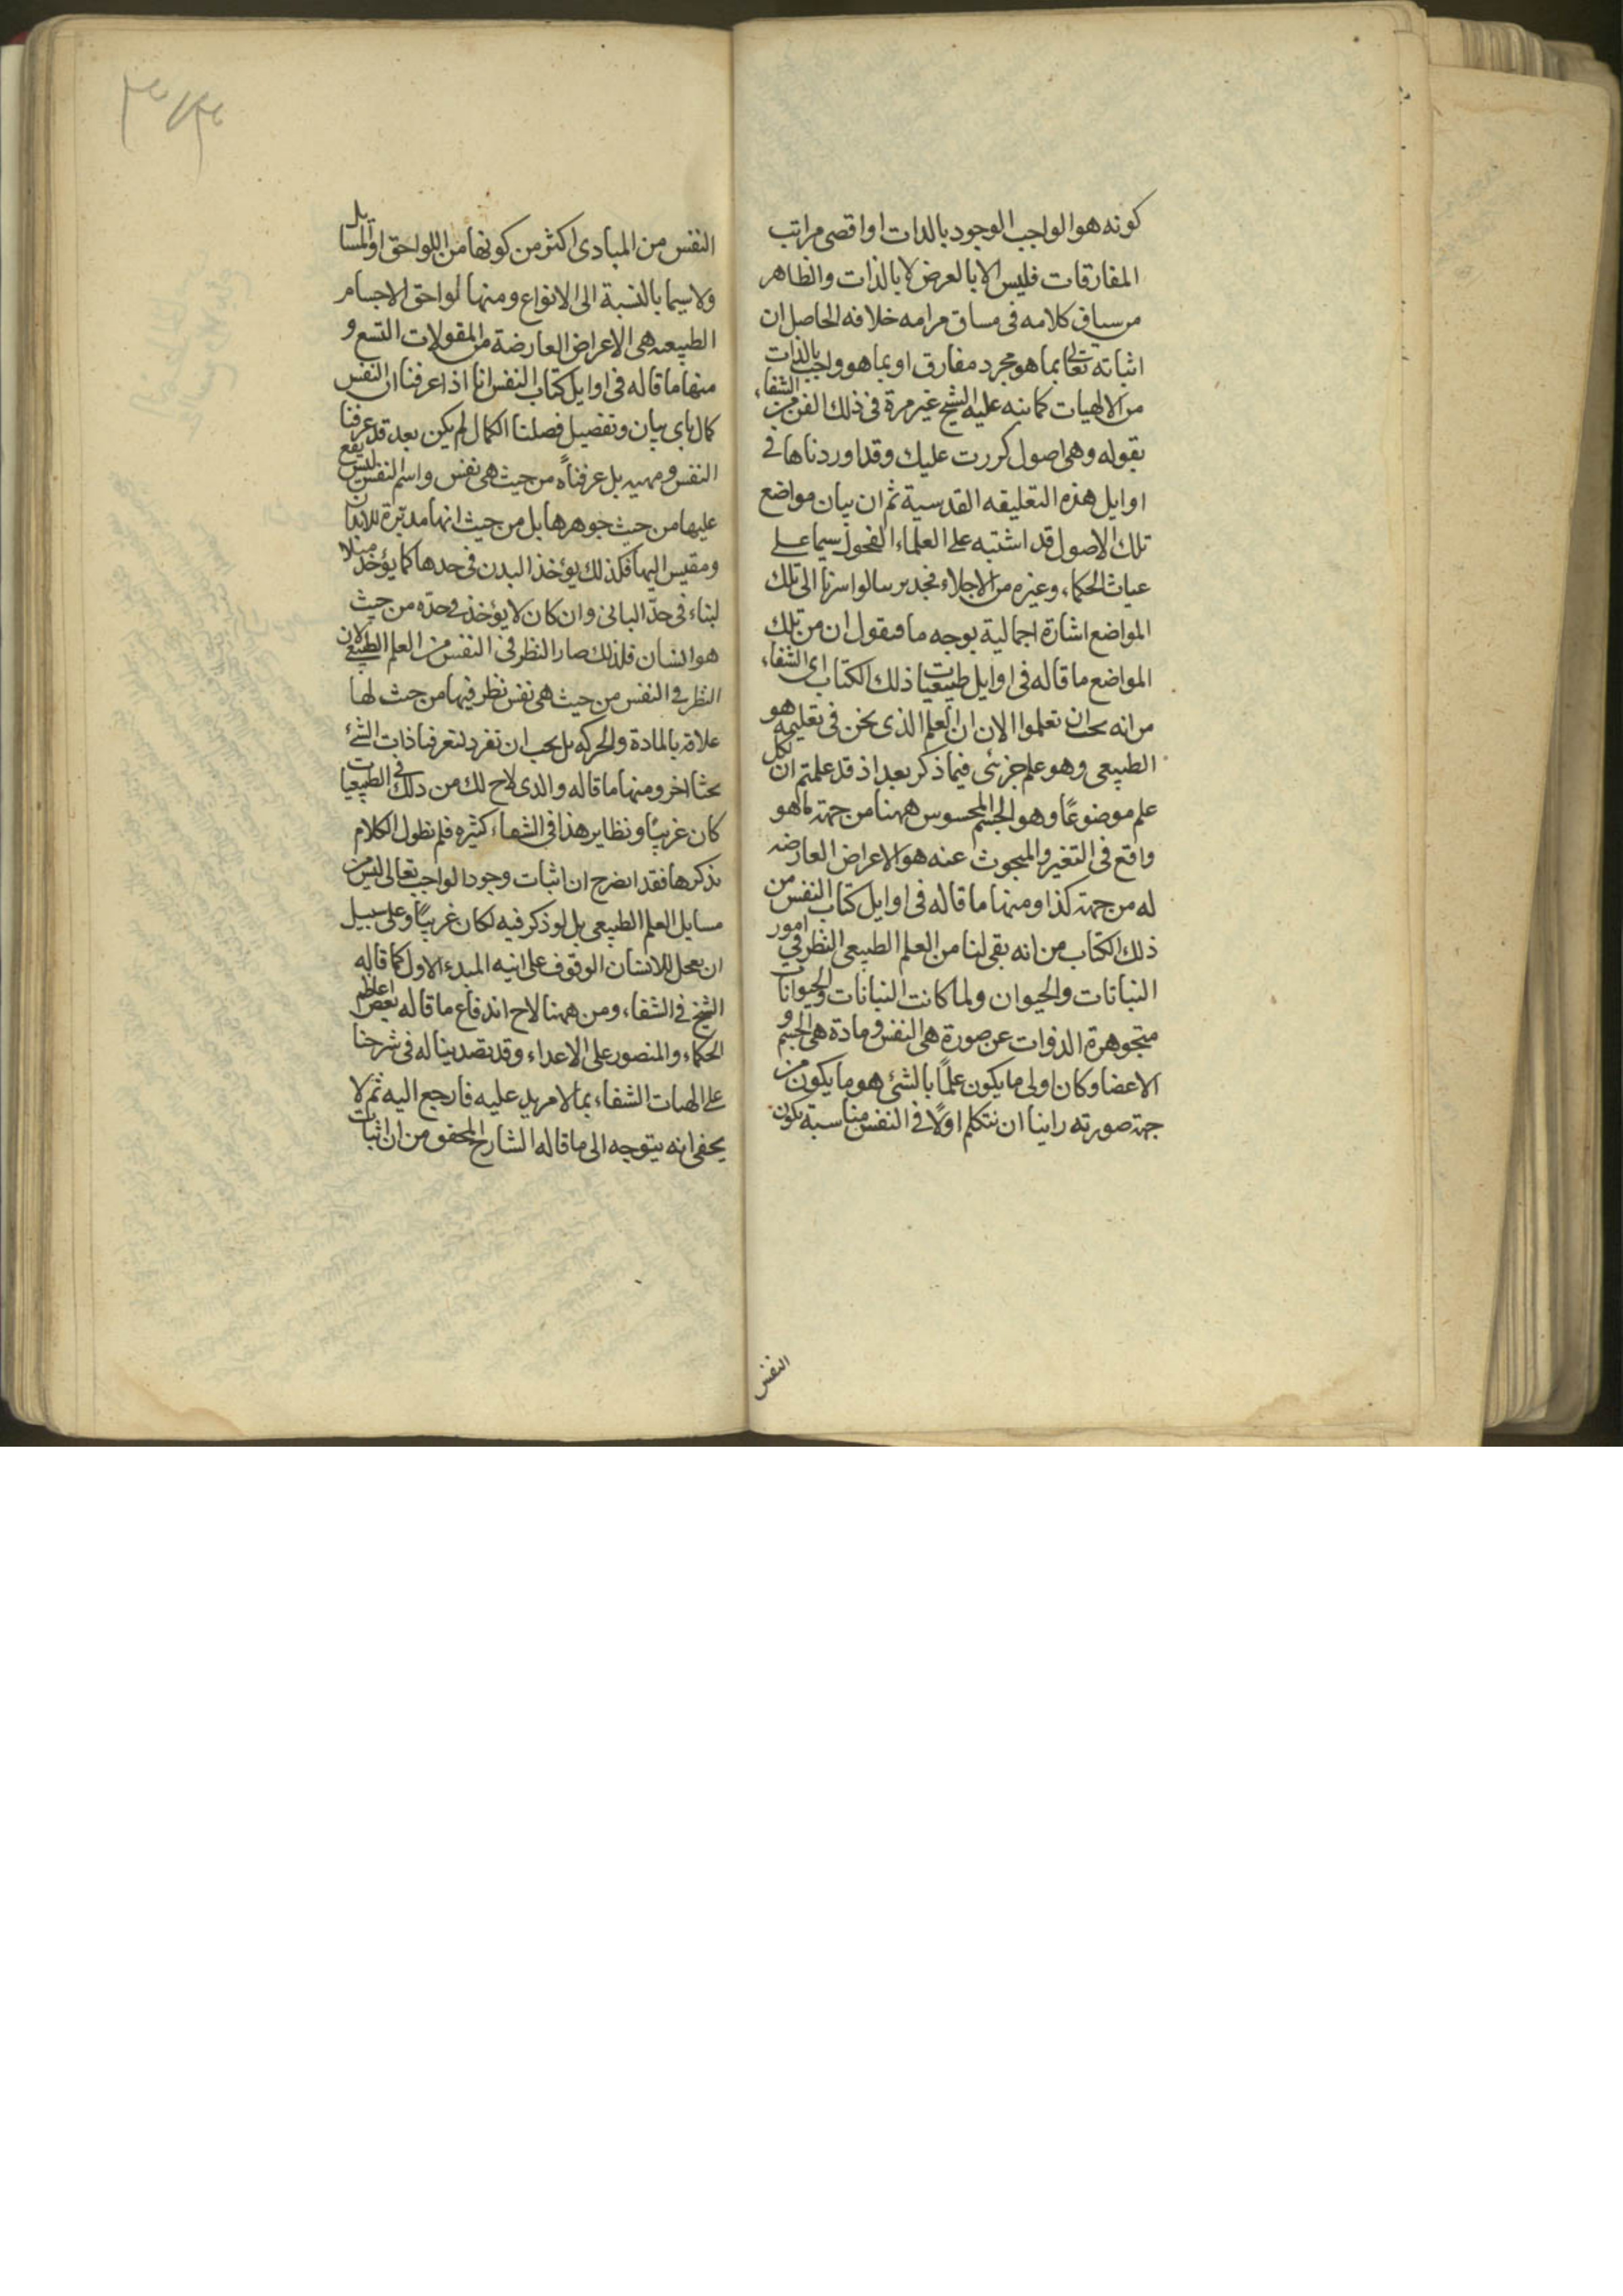 كونه هو الواجب الوجود بالذات او اقصى مراتب
المفارقات فليس الا بالعرض لا بالذات والظاهر
من سياق كلامه فى مساق مرامه خلافه الحاصل ان
اثباته تعالى بما هو مجرد مفارق او بما هو واجب بالذات
من الالهيات كما ينبه عليه الشيخ غير مرة فى ذلك الفن من الشفاء
بقوله وهى اصول كررت عليك وقد اوردناها فى
اوايل هذه التعليقه القدسية ثم ان بيان مواضع
تلك الاصول قد اشتبه على العلماء الفحول سيما على
غياث الحكماء وغيره من الاجلاء فجدير بنا لو اشرنا الى تلك
المواضع اشارة اجمالية بوجه ما فنقول ان من تلك
المواضع ما قاله فى اوايل طبيعيات ذلك الكتاب اى الشفاء
من انه يجب ان تعلموا الان ان العلم الذى نحن فى تعليمه هو
الطبيعى وهو علم جزئى فيما ذكر بعد اذ قد علمتم ان لكل
علم موضوعًا وهو الجسم المحسوس ههنا من جهة ما هو
واقع فى التغير والمبحوث عنه هو الاعراض العارضه
له من جهة كذا ومنها ما قاله فى اوايل كتاب النفس من
ذلك الكتاب من انه بقى لنا من العلم الطبيعى النظر في امور
النباتات والحيوان ولما كانت النباتات والحيوانات
متجوهرة الذوات عن صورة هى النفس ومادة هى الجسم و
الاعضا وكان اولى ما يكون علمًا بالشئ هو ما يكون من
جهة صورته راينا ان نتكلم اولًا فى النفس مناسبة يكون
النفس
النفس من المبادى اكثر من كونها من اللواحق او المسايل
ولا سيما بالنسبة الى الانواع ومنها لواحق الاجسام
الطبيعه هى الاعراض العارضة من المقولات التسع و
منها ما قاله فى اوايل كتاب النفس انا اذا عرفنا ان النفس
كمال باى بيان وتفصيل فصلنا الكمال لم يكن بعد قد عرفنا
النفس ومهيه بل عرفناه من حيث هى نفس واسم النفس ليس يقع
عليها من حيث جوهرها بل من حيث انها مدبّرة للابدان
ومقيس اليها فكذلك يؤخذ البدن فى حدها كما يؤخذ مثلا
لبناء فى حدّ البانى وان كان لا يؤخذ فى حدّه من حيث
هو انسان فلذلك صار النظر فى النفس من العلم الطبيعى لان
النظر فى النفس من حيث هى نفس نظر فيها من حيث لها
علاقة بالمادة والحركه بل يجب ان نفرد لتعرفنا ذات الشئ
بحثا اخر ومنها ما قاله والذى لاح لك من ذلك فى الطبيعيات
كان غريبًا ونظاير هذا فى الشفاء كثيره فلم نطول الكلام
بذكرها فقد اتضح ان اثبات وجود الواجب تعالى ليس من
مسايل العلم الطبيعى بل لو ذكر فيه لكان غريبًا وعلى سبيل
ان يعجل للانسان الوقوف على انيه المبدء الاول كما قاله
الشيخ فى الشفاء ومن ههنا لاح اندفاع ما قاله بعض اعاظم
الحكماء والمنصور على الاعداء وقد تصدينا له فى شرحنا
على الهيات الشفاء بما لا مزيد عليه فارجع اليه ثم لا
يخفى انه يتوجه الى ما قاله الشارح المحقق من ان اثبات